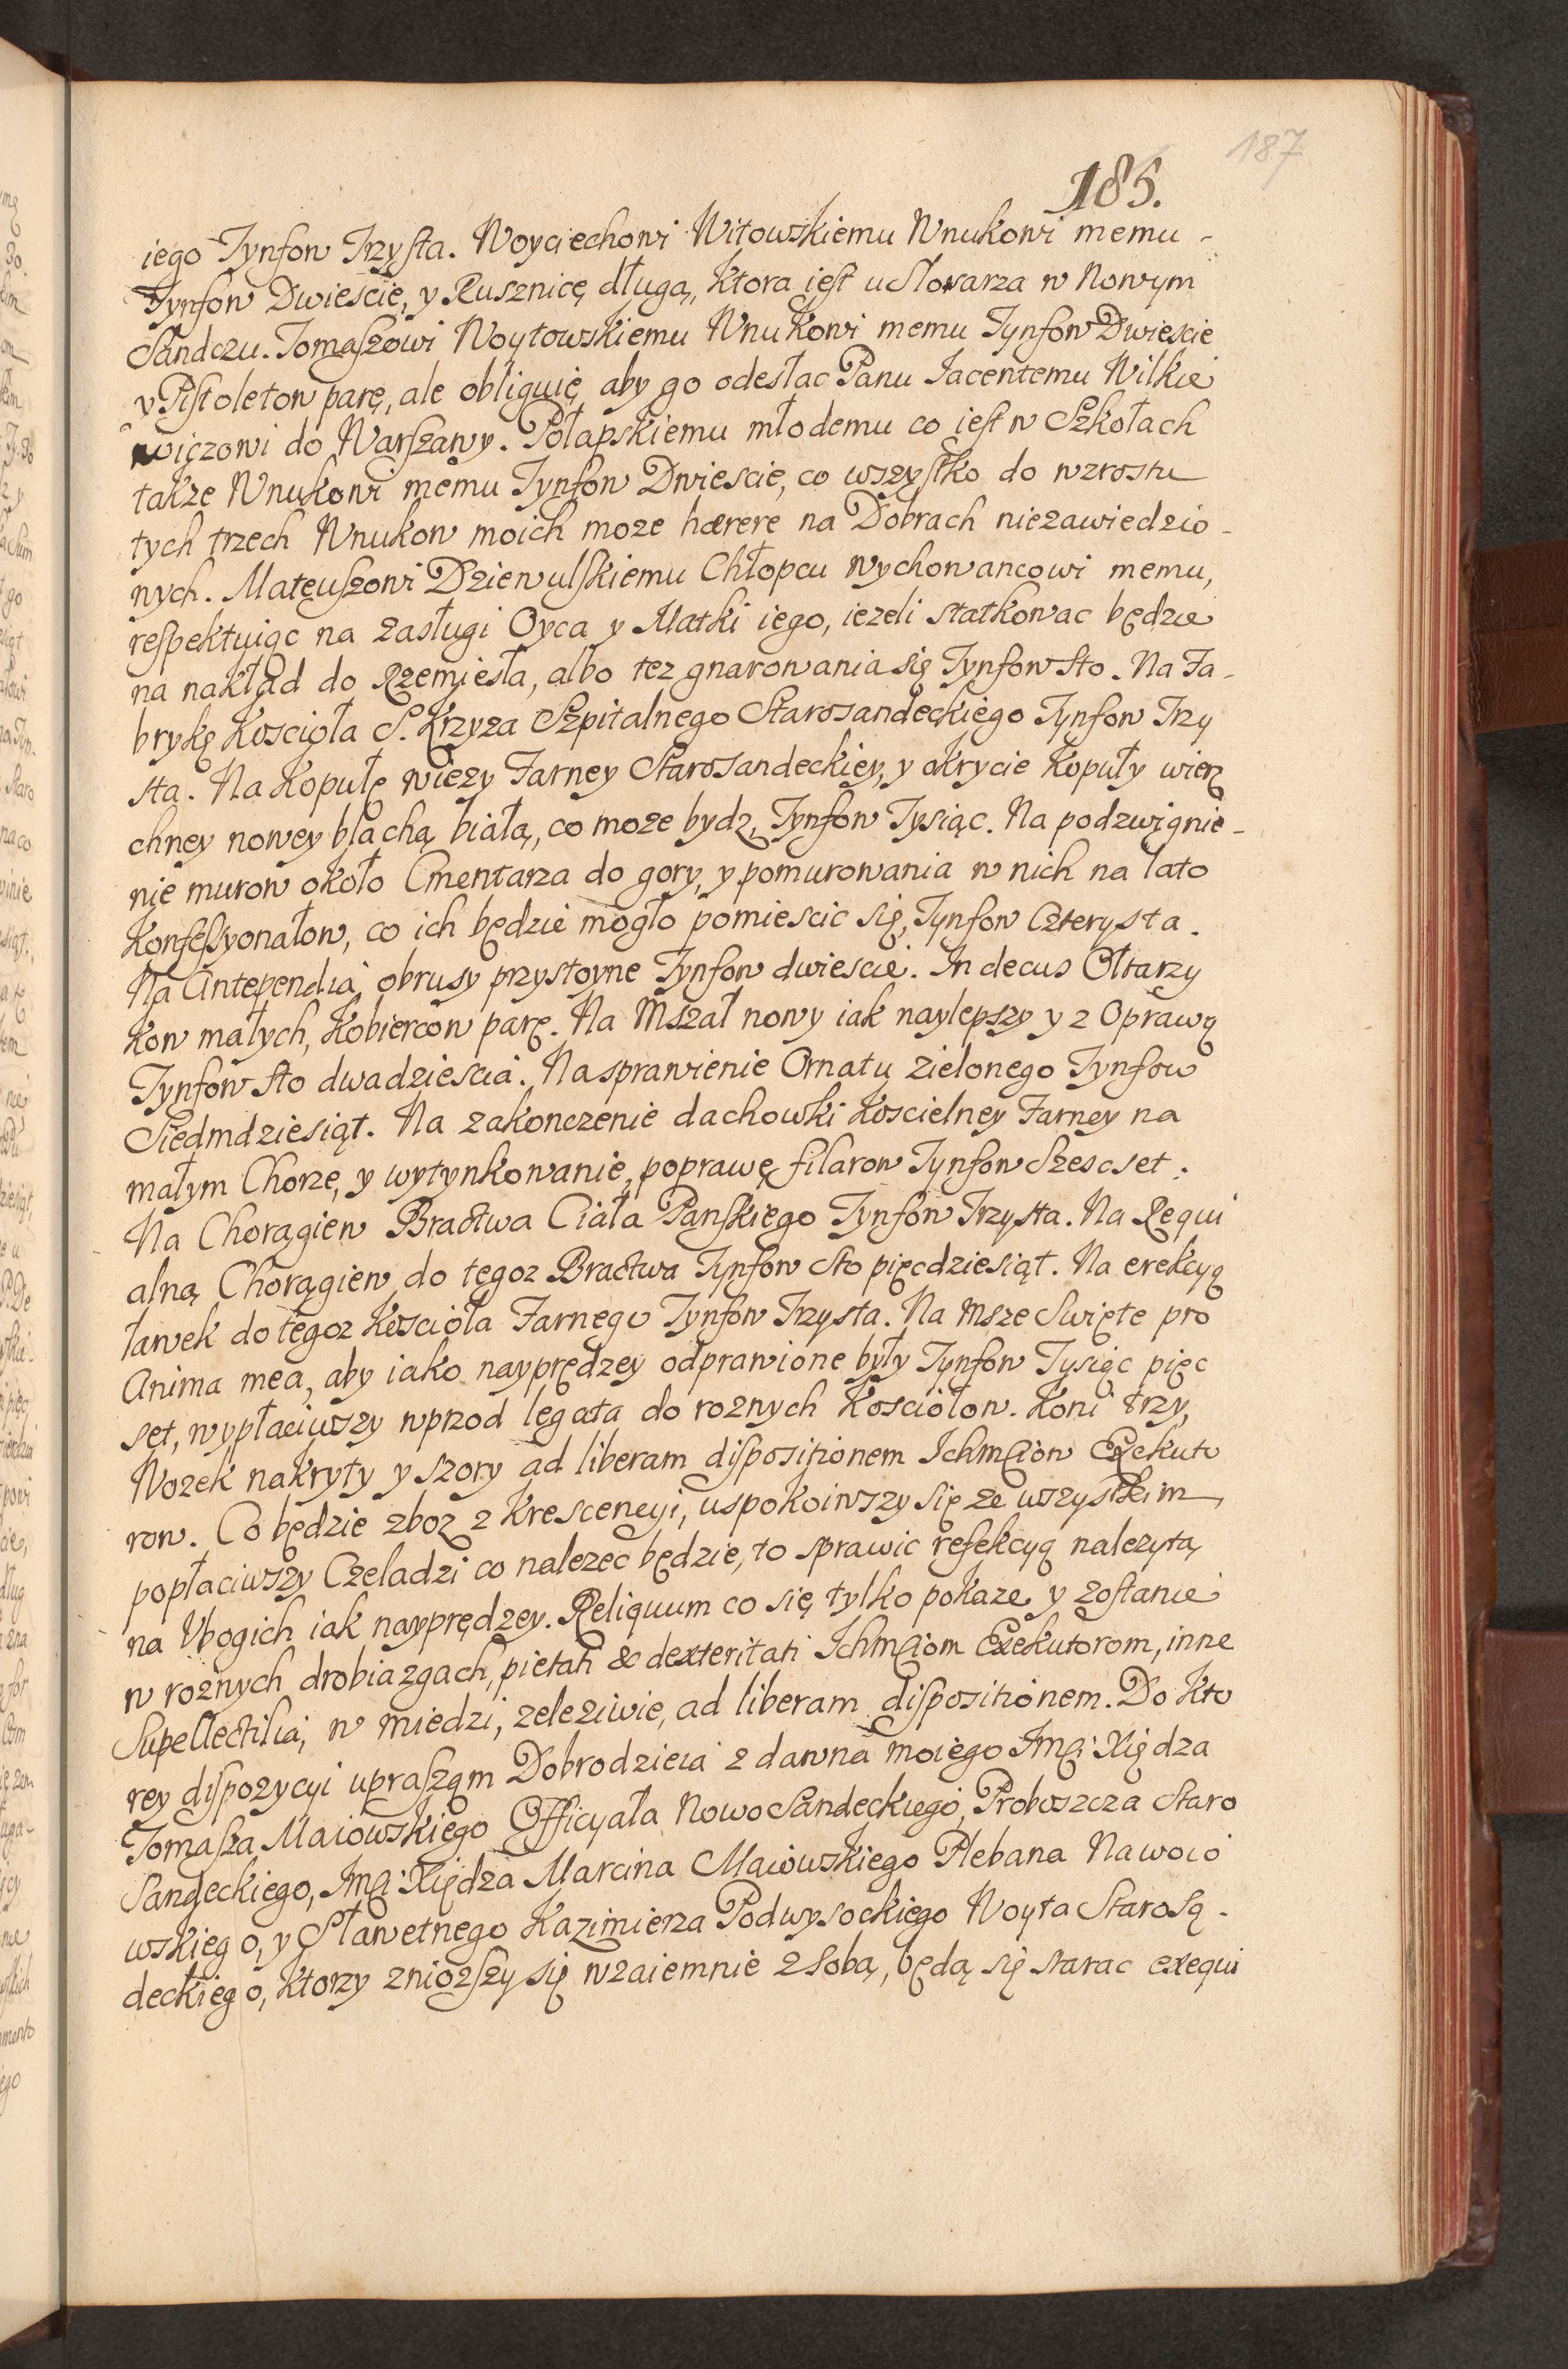 187
185.
iego Tynfow Trzysta. Woyciechowi Witowskiemu Wnukowi memu -
Tynfow Dwiescie, y Rusznicę długą, ktora iest u Slosarza w Nowym
Sandczu. Tomaszowi Woytowskiemu Wnukowi memu Tynfow Dwiescie
y Pistoletow parę, ale obliguię, aby go odesłac Panu Iacentemu Wilkie
wiczowi do Warszawy. Połapskiemu młodemu co iest w Szkołach
takze Wnukowi memu Tynfow Dwiescie, co wszystko do wzrostu
tych trzech Wnukow moich moze hærere na Dobrach niezawiedzio -
nych. Mateuszowi Dziewulskiemu Chłopcu wychowancowi memu,
respektuiąc na zasługi Oyca y Matki iego, iezeli statkowac będzie
na nakład do Rzemiesła, albo tez gnarowania się Tynfow sto. Na Fa -
brykę Koscioła S. Krzyza Szpitalnego Starosandeckiego Tynfow Trzy
sta. Na Kopułę wiezy Farney Starosandeckiey, y okrycie Kopuły wierz
chney nowey blachą białą, co moze bydz, Tynfow Tysiąc. Na podzwignie -
nie murow około Cmentarza do gory, y pomurowania w nich na lato
Konfessyonałow, co ich będzie mogło pomiescic się, Tynfow Czterysta.
Na Antependia, obrusy przystoyne Tynfow dwiescie. In decus Ołtarzy
kow małych, Kobiercow parę. Na Mszał nowy iak naylepszy y z Oprawą
Tynfow sto dwadziescia. Na sprawienie Ornatu zielonego Tynfow
Siedmdziesiąt. Na zakonczenie dachowki Koscielney Farney na
małym Chorze, y wytynkowanie, poprawę filarow Tynfow Szescset.
Na Chorągiew Bractwa Ciała Panskiego Tynfow Trzysta. Na Requi
alną Chorągiew do tegoz Bractwa Tynfow sto pięcdziesiąt. Na erekcyą
ławek do tegoz Koscioła Farnego Tynfow Trzysta. Na Msze Swięte pro
Anima mea, aby iako nayprędzey odprawione były Tynfow Tysiąc pięc
set, wypłaciwszy wprzod legata do roznych Kosciołow. Koni trzy,
Wozek nakryty y szory ad liberam dispositionem Ichmciow Exekuto
row. Co będzie zboz z Krescencyi, uspokoiwszy się ze wszystkim,
popłaciwszy Czeladzi co nalezec będzie, to sprawic refekcyą nalezytą
na Vbogich iak nayprędzey. Reliquum co się tylko pokaze y zostanie
w roznych drobiazgach, pietati & dexteritati Ichmciom Exekutorom, inne
Supellectilia, w miedzi, zeleziwie, ad liberam dispositionem. Do kto
rey dispozycyi upraszam Dobrodzieia z dawna moiego Jmci Xiędza
Tomasza Maiowskiego Officyała Nowo Sandeckiego, Proboszcza Staro
Sandeckiego, Jmci Xiędza Marcina Maiowskiego Plebana Nawoio
wskiego, y Sławetnego Kazimierza Podwysockiego Woyta Starosą -
deckiego, ktorzy zniozszy się wzaiemnie z sobą, będą się starac exequi